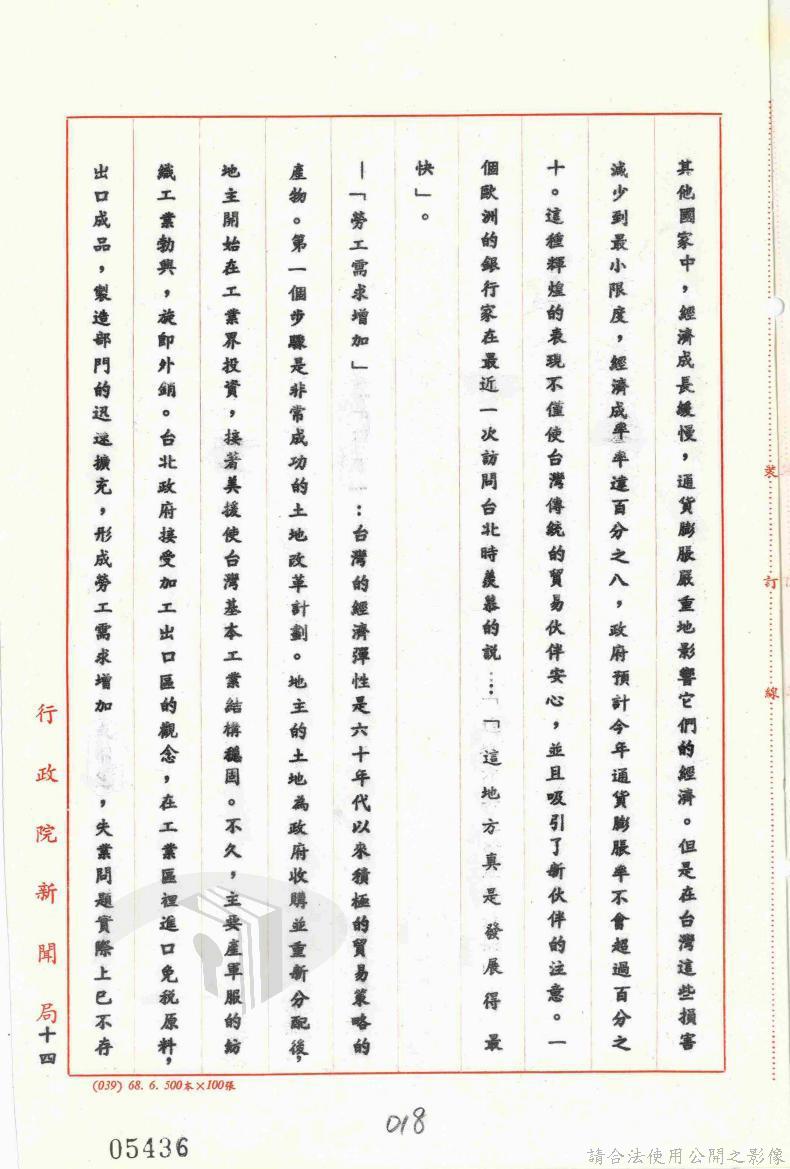 其他國家中，經濟成長緩慢，通貨膨脹嚴重地影響它們的經濟。但是在台灣這些損害
減少到最小限度，經濟成率率達百分之八，政府預計今年通貨膨脹率不會超過百分之
十。這種輝煌的表現不僅使台灣傳統的貿易伙伴安心，並且吸引了新伙伴的注意。一
個歐洲的銀行家在最近一次訪問台北時羨慕的說：「「這地方真是發展得最
快」。
—「勞工需求增加」：台灣的經濟彈性是六十年代以來積極的貿易策略的
產物。第一個步驟是非常成功的土地改革計劃。地主的土地為政府收購並重新分配後，
地主開始在工業界投資，接著美援使台灣基本工業結構穩固。不久，主要產軍服的紡
織工業勃興，旋即外銷。台北政府接受加工出口區的觀念，在工業區裡進口免稅原料，
出口成品，製造部門的迅速擴充，形成勞工需求增加，失業問題實際上已不存
裝訂線
行政院新聞局
十四
(039) 68. 6. 500本×100張
018
05436
請合法使用公開之影像